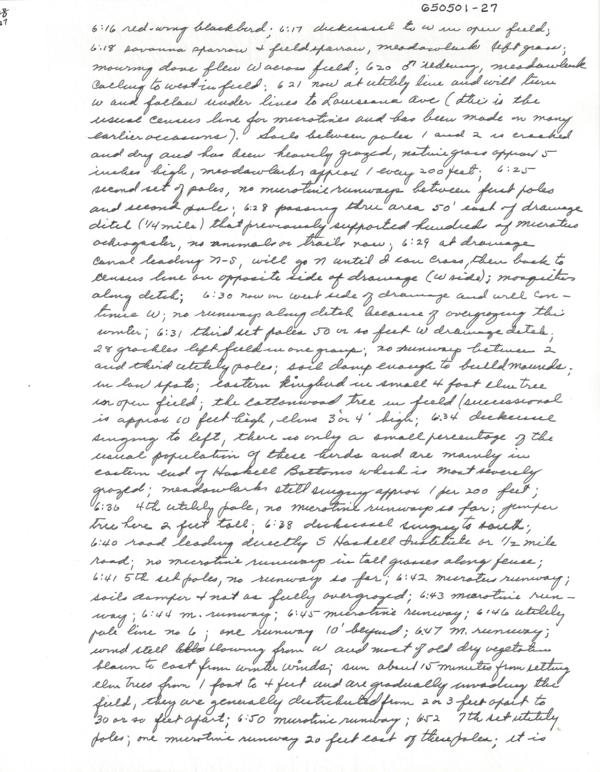 650501-27
6:16 red-wing blackbird; 6:17 dickcissel to W in open field;
6:18 savanna sparrow & field sparrow, meadowlark left grass;
mourning dove flew W across field; 620 ♂ redwing, meadowlark
calling to west in field; 621 now at utility line and will turn
W and follow under lines to Louisiana Ave (this is the
usual census line for microtines and has been made on many
earlier occasions). Soils between poles 1 and 2 is cracked
and dry and has been heavily grazed, native grass approx 5
inches high, meadowlarks approx 1 every 200 feet; 6:25
second set of poles, no microtine runways between first poles
and second pole; 6:28 passing thru area 50' east of drainage
ditch (1/4 mile) that previously supported hundreds of Microtus
ochrogaster, no animals or trails now; 6:29 at drainage
canal leading N-S, will go N until I can cross, then back to
census line on opposite side of drainage (W side); mosquitos
along ditch; 6:30 now on west side of drainage and will con-
tinue W; no runways along ditch because of overgrazing this
winter; 6:31 third set poles 50 or so feet W drainage ditch;
28 grackles left field in one group; no runways between 2
and third utility poles; soil damp enough to build mounds
in low spots; eastern kingbird in small 4 foot elm tree
in open field; the cottonwood tree in field (successional
is approx 10 feet high, elms 3' or 4' high; 6:34 dickcissel
singing to left, there is only a small percentage of the
usual population of these birds and are mainly in
eastern end of Haskell Bottoms which is most severely
grazed; meadowlarks still singing approx 1 per 200 feet;
6:36 4th utility pole, no microtine runways so far; juniper
tree here 2 feet tall; 6:38 dickcissel singing to south;
6:40 road leading directly S Haskell Institute or 1/2 mile
road; no microtine runways in tall grasses along fence;
6:41 5th set poles, no runways so far; 6:42 microtus runway;
soils damper & not as fully overgrazed; 6:43 microtine run-
way; 6:44 m. runway; 6:45 microtine runway; 6:46 utility
pole line no 6; one runway 10' beyond; 6:47 M. runway;
wind still blowing from W and most of old dry vegetation
blown to east from winter winds; sun about 15 minutes from setting
elm trees from 1 foot to 4 feet and are gradually invading this
field, they are generally distributed from 2 or 3 feet apart to
30 or so feet apart; 6:50 microtine runway; 652 7th set utility
poles; one microtine runway 20 feet east of these poles; it is